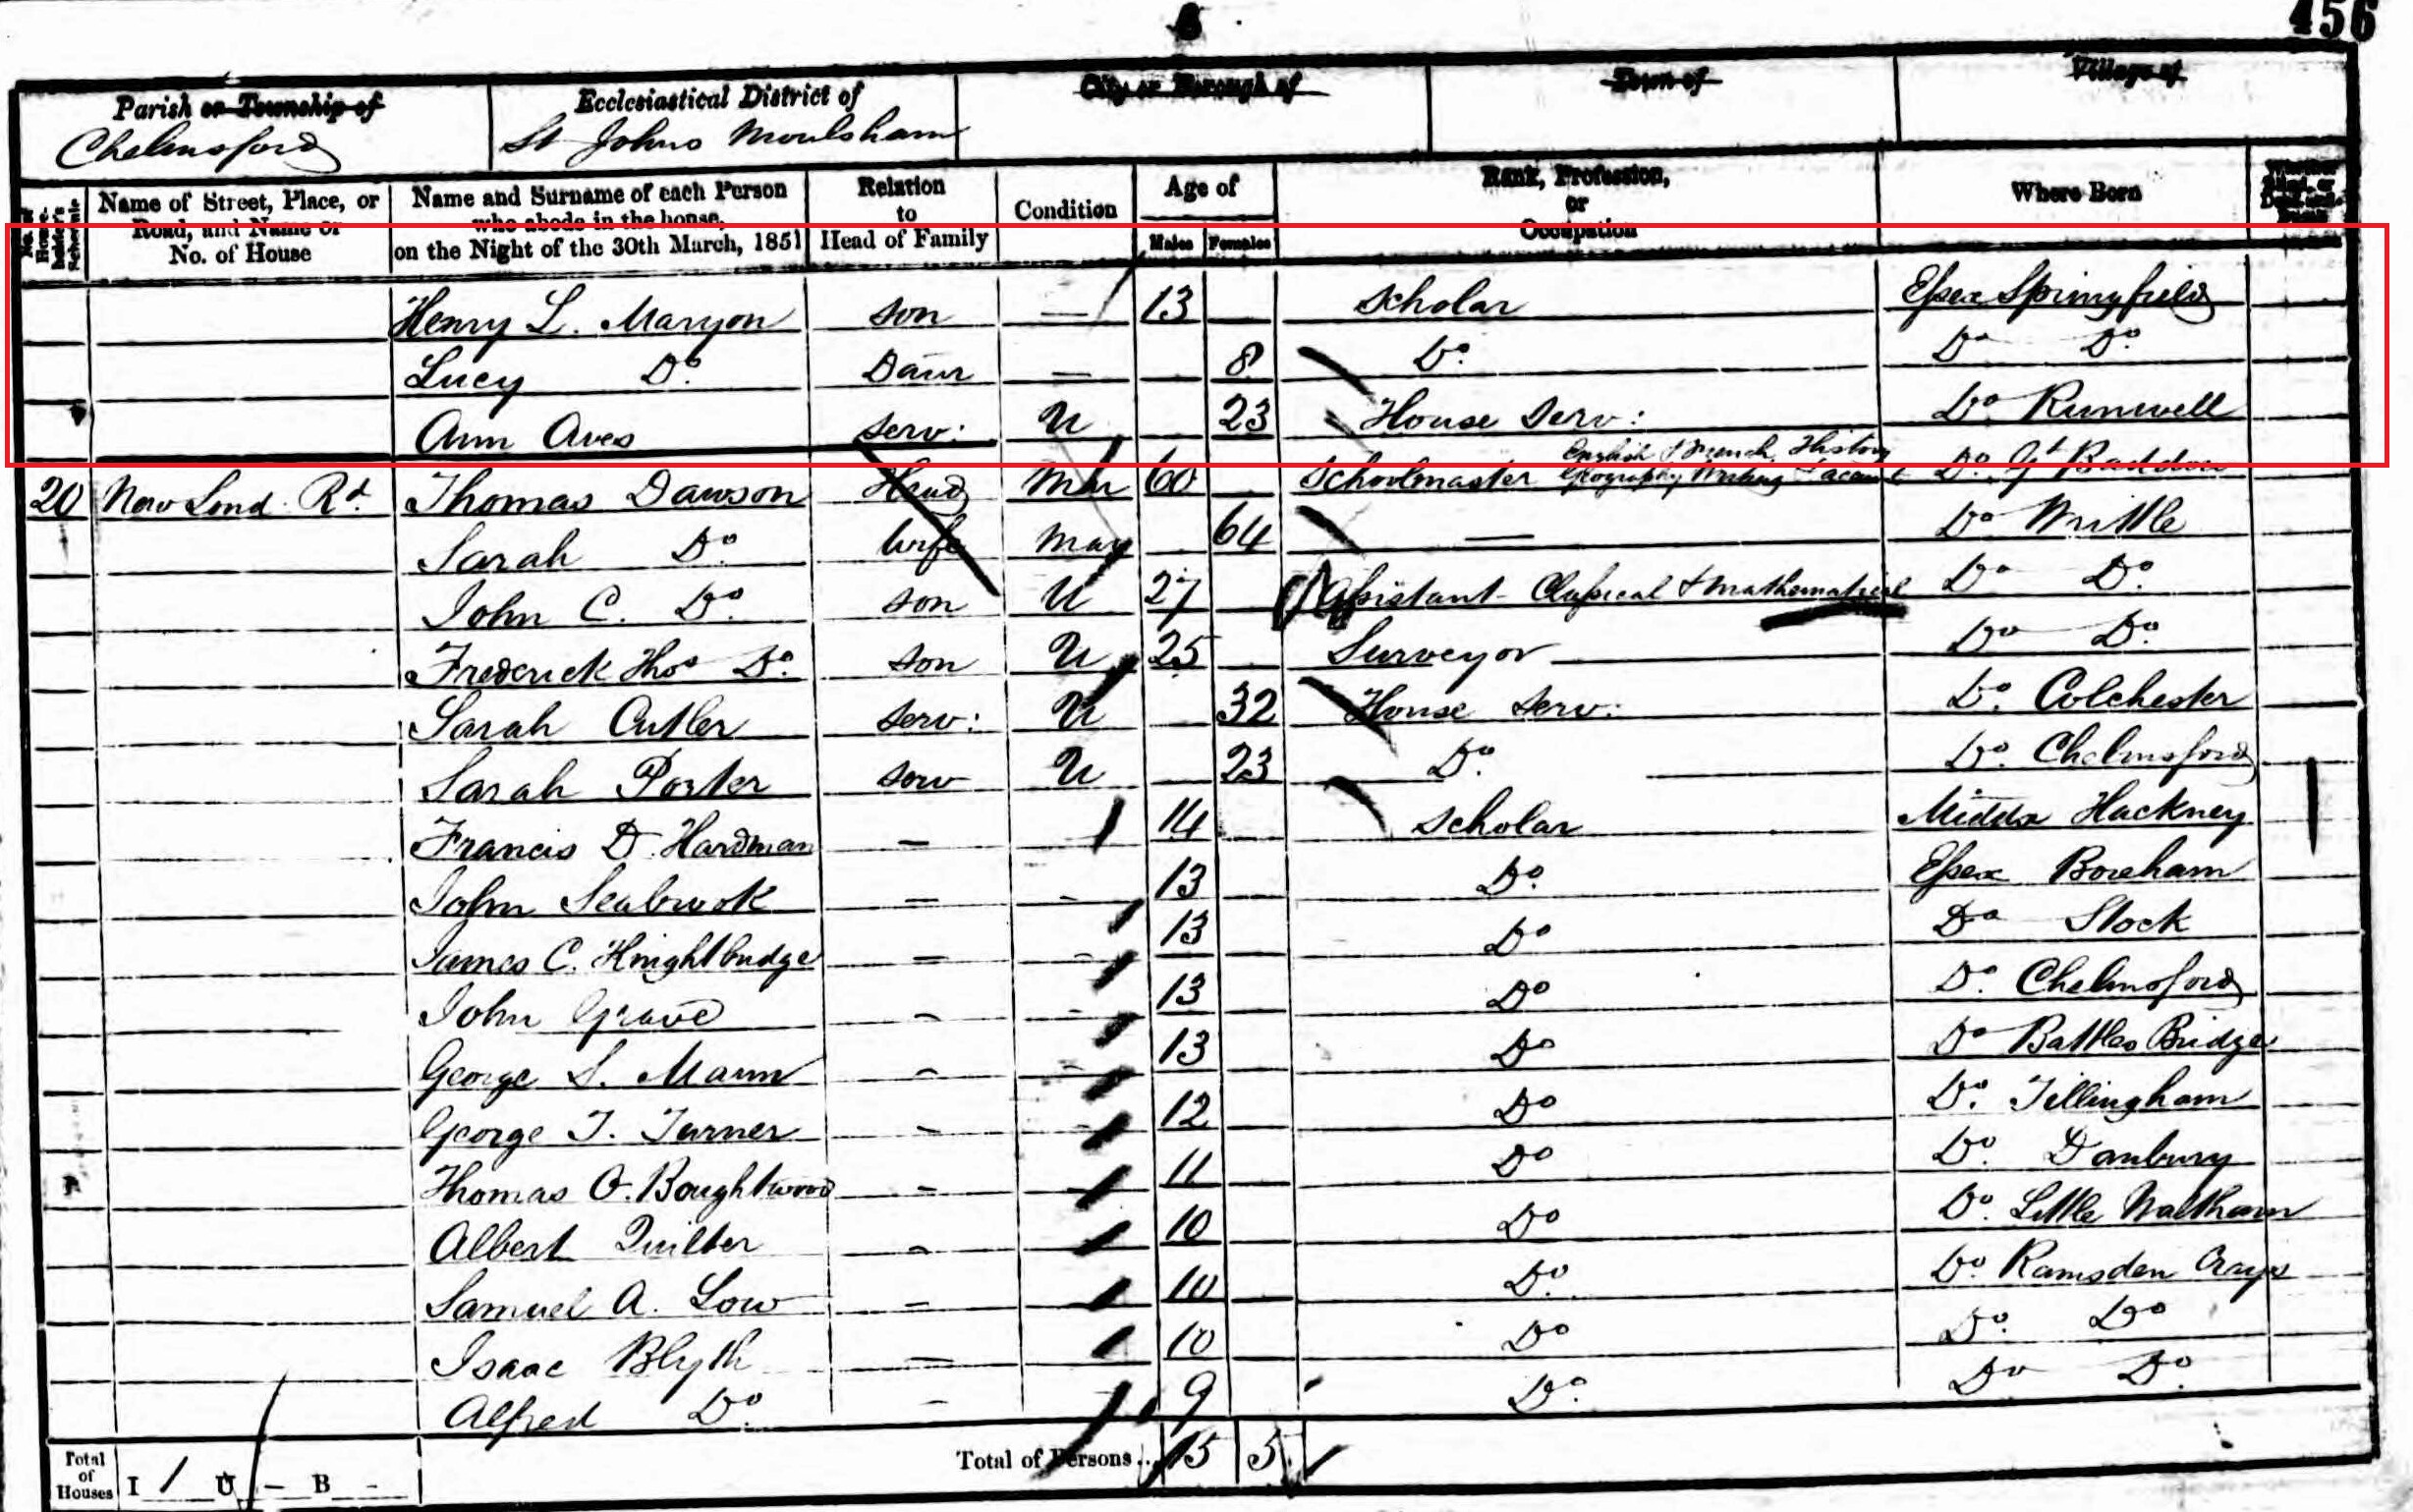 456
Parish or Township of
Chelmsford
Ecclesiastical District of
St Johns Moulsham
City or Borough of
Town of
Village of
Name of Street, Place, or Road, and Name or No. of House
Name and Surname of each Person who abode in the house, on the Night of the 30th March, 1851
Relation to Head of Family
Condition
Age of
Males Females
Rank, Profession, or Occupation
Where Born
Henry L. Maryon son — 13 Scholar Essex Springfield
Lucy Do. Daur — 8 Do. Do Do.
Ann Aves Serv: U 23 House Serv: Do Runwell
20 New Lond. Rd. Thomas Dawson Head Mar 60 Schoolmaster English & French, History Geography, Writing & Do. Gt Baddow
Sarah Do Wife Mar 64 — Do Writtle
John C. Do. son U 27 Assistant - Classical & Mathematical Do Do.
Frederick Thos Do. son U 25 Surveyor Do Do.
Sarah Cutler Serv: U 32 House Serv: Do. Colchester
Sarah Porter Serv U 23 Do. Do. Chelmsford
Francis D. Hardman — 14 Scholar Middx Hackney
John Seabrook — - 13 Do. Essex Boreham
James C. Knightbridge — - 13 Do Do Stock
John Grave - - 13 Do Do. Chelmsford
George S. Mann - - 13 Do Do Battles Bridge
George T. Turner - - 12 Do Do. Tillingham
Thomas O. Boughtwood - 11 Do Do. Danbury
Albert Quilter - 10 Do Do. Little Waltham
Samuel A. Low — 10 Do. Do. Ramsden Crays
Isaac Blyth — 10 Do Do. Do
Alfred Do - 9 Do. Do Do.
Total of Houses I 1 U — B -
Total of Persons... 15 5